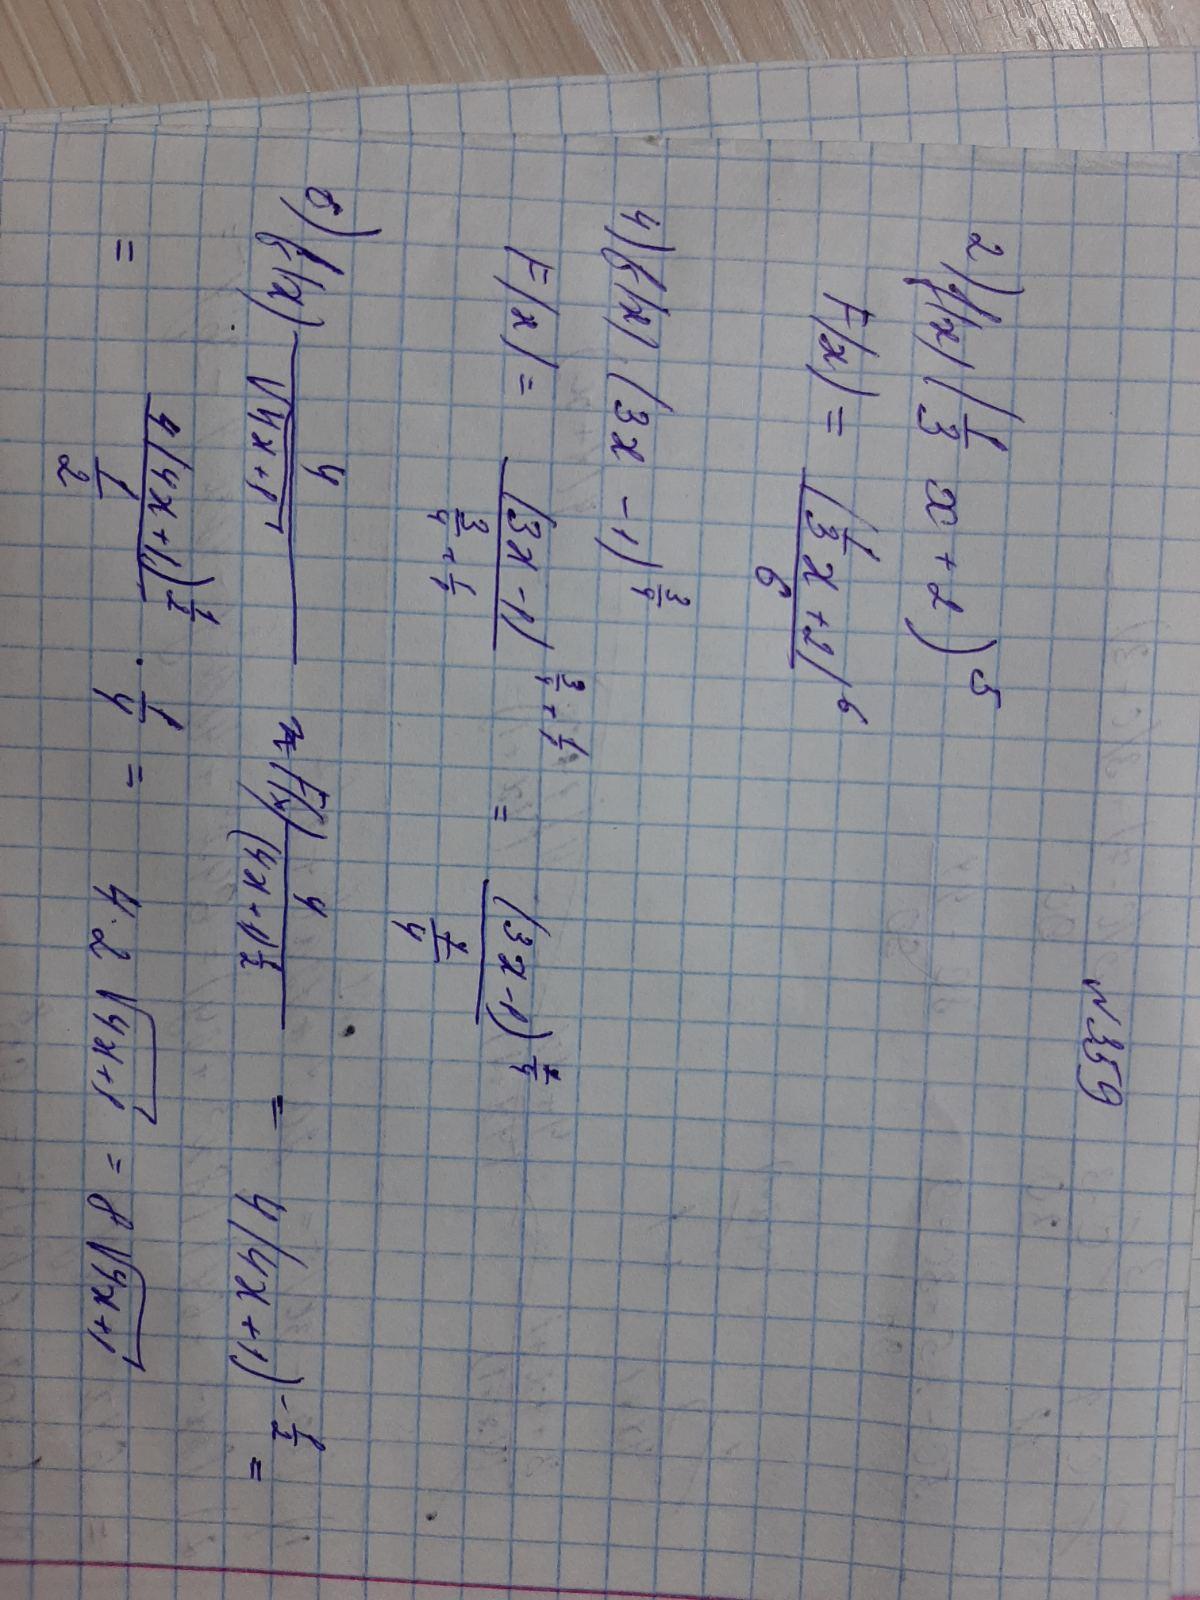 №359
2) f(x) (1/3 x + 2)^5
F(x) = (1/3 x + 2)^6 / 6
4) f(x) (3x - 1)^(3/4)
F(x) = (3x - 1)^(3/4 + 1/1) / (3/4 + 1/1) = (3x - 1)^(7/4) / (7/4)
б) f(x) 4 / √(4x + 1) F(x) 4 / (4x + 1)^(1/2) = 4(4x + 1)^(-1/2) =
= 4(4x + 1)^(1/2) / (1/2) · 1/4 = 4·2√(4x+1) = 8√(4x+1)